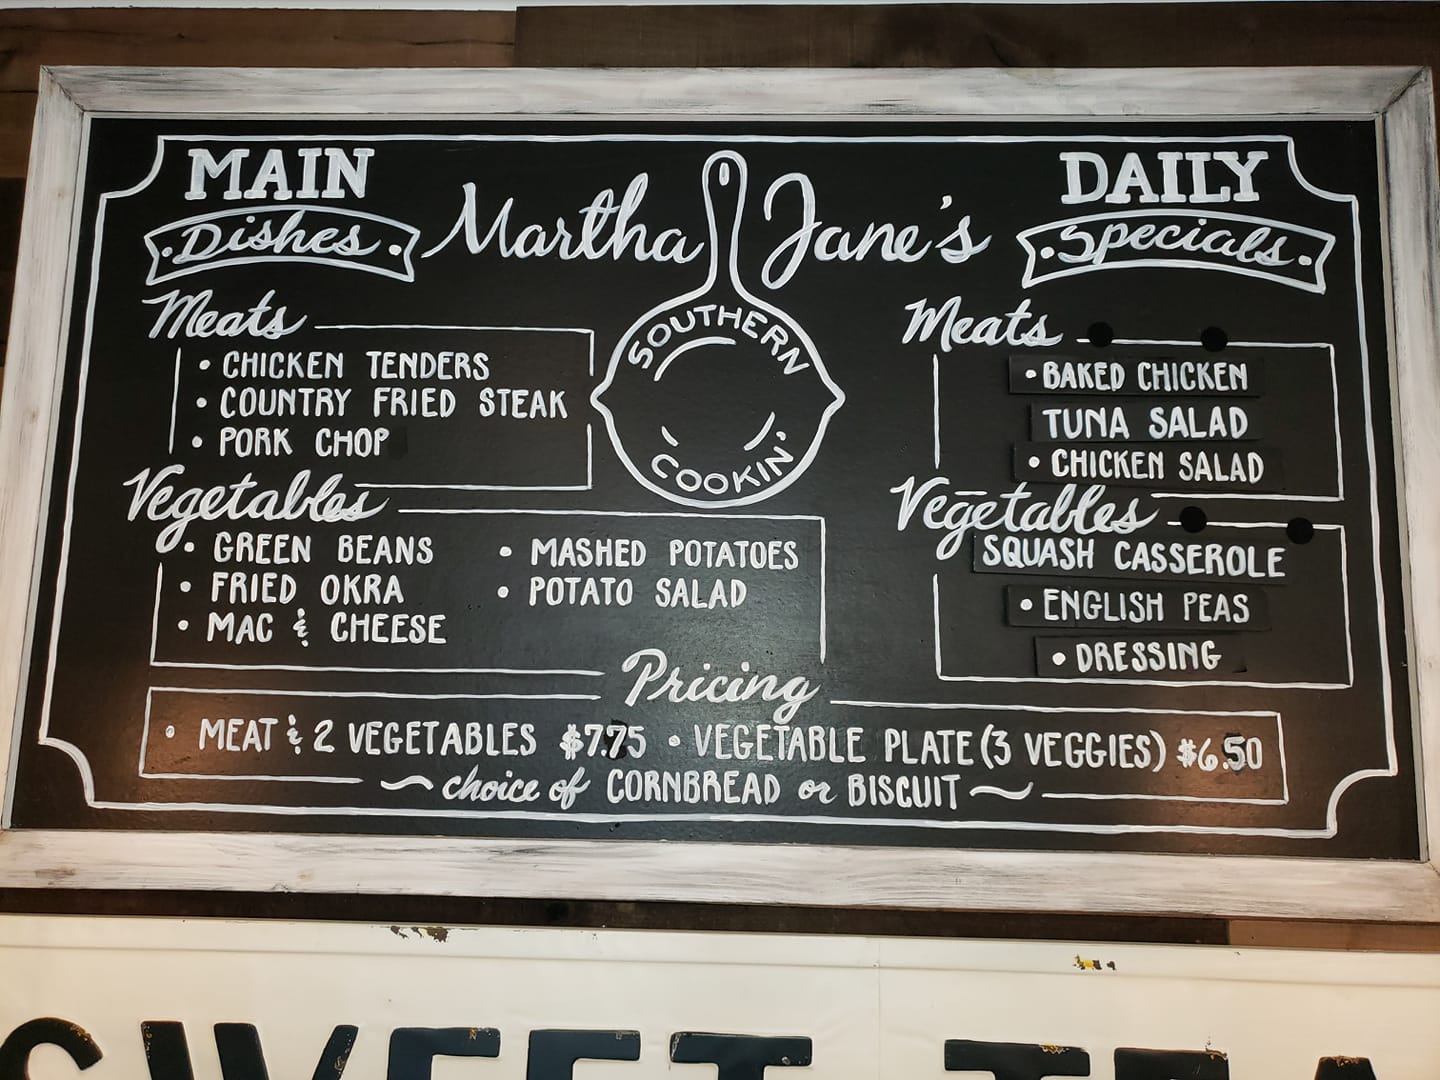 MAIN
Dishes
Martha Jane's
SOUTHERN
COOKIN'
DAILY
Specials
Meats
• CHICKEN TENDERS
• COUNTRY FRIED STEAK
• PORK CHOP
Vegetables
• GREEN BEANS
• FRIED OKRA
• MAC & CHEESE
• MASHED POTATOES
• POTATO SALAD
Meats
• BAKED CHICKEN
TUNA SALAD
• CHICKEN SALAD
Vegetables
SQUASH CASSEROLE
• ENGLISH PEAS
• DRESSING
Pricing
• MEAT & 2 VEGETABLES $7.75 • VEGETABLE PLATE (3 VEGGIES) $6.50
~ choice of CORNBREAD or BISCUIT ~
SWEET TEA